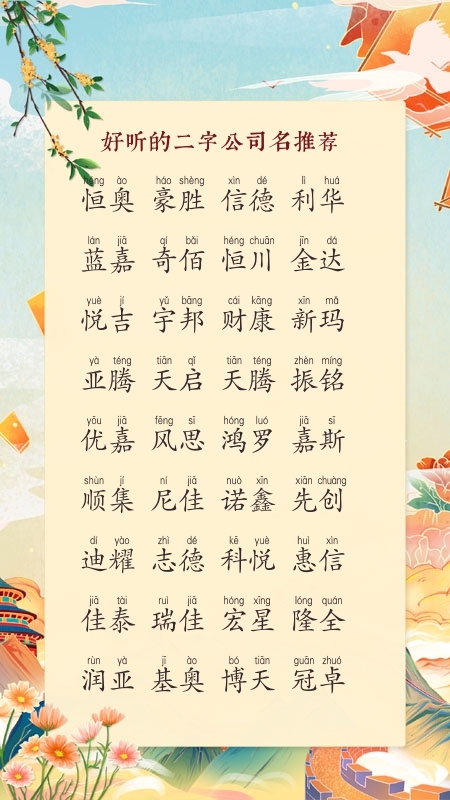 好听的二字公司名推荐
héng ào háo shèng xìn dé lì huá
恒奥 豪胜 信德 利华
lán jiā qí bǎi héng chuān jīn dá
蓝嘉 奇佰 恒川 金达
yuè jí yǔ bāng cái kāng xīn mǎ
悦吉 宇邦 财康 新玛
yà téng tiān qǐ tiān téng zhèn míng
亚腾 天启 天腾 振铭
yōu jiā fēng sī hóng luó jiā sī
优嘉 风思 鸿罗 嘉斯
shùn jí ní jiā nuò xīn xiān chuàng
顺集 尼佳 诺鑫 先创
dí yào zhì dé kē yuè huì xìn
迪耀 志德 科悦 惠信
jiā tài ruì jiā hóng xīng lóng quán
佳泰 瑞佳 宏星 隆全
rùn yà jī ào bó tiān guān zhuó
润亚 基奥 博天 冠卓